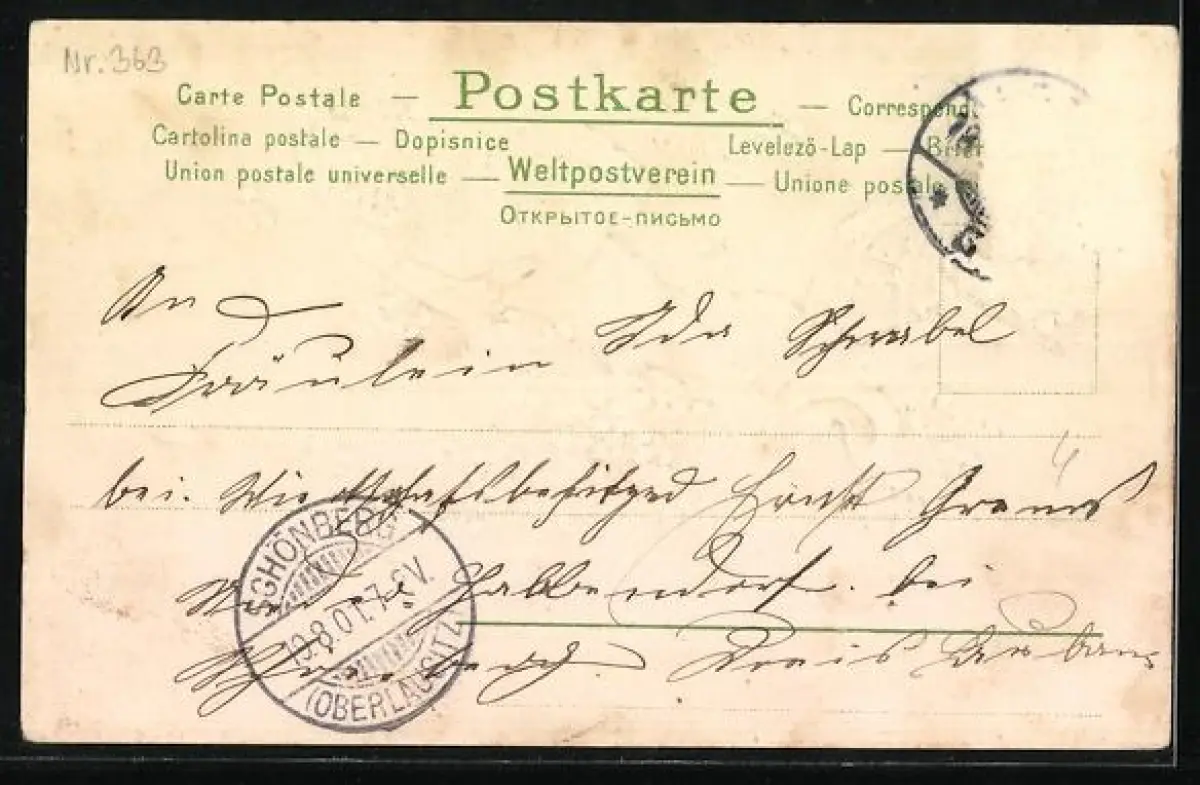 Nr. 363
Carte Postale — Postkarte — Correspond
Cartolina postale — Dopisnice
Levelező-Lap — Brief
Union postale universelle — Weltpostverein — Unione postale
Открытое-письмо
An
Fräulein Ida Schwabel
bei. Wirthschaftsbesitzer Ernst
Halbendorf. bei
Schönberg Kreis Lauban
SCHÖNBERG
19.8.01.7-8V.
(OBERLAUSITZ)